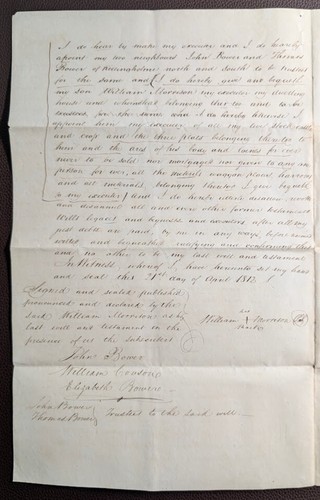 I do hear by make my and I do hearby
apoint my two neighbours John Bower and Thomas
Bower of north and south to be trustees
for the same and I do hereby give and bequeth
my son William Morrison my executor my dwelling
house and belonging thereto and to be
for the same and I do hereby
apoint him my of all my live stock
and crop and the three places belonging thereto to
him and the airs of his body and for ever
never to be sold nor mortgaged nor given to any
person for ever, all the wagon plows harrows
and all belonging thereto I give bequeth
to my executor and I do hereby revoke
and disannul all and every other former testaments
Wills legaces and bequests and executors after all my
just debts are paid, by me in any ways before named
willed and bequeathed ratifying and confirming this
and no other to be my last will and testament
In Witness whereof I have hereunto set my hand
and seal this 21st day of April 1813
Signed and sealed published
pronounced and declared by the
said William Morrison as his
last will and testament in the
presence of us the subscribers
William his Morrison
mark
John Bower
William
Elizabeth Bowers
John Bower
Thomas Bower
Trustees to the said will